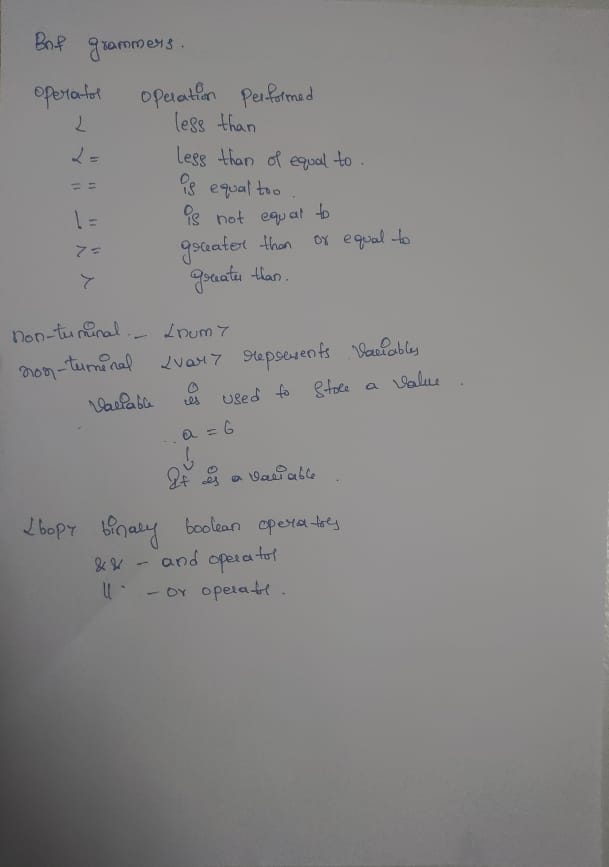 Bnf grammers.
operator operation performed
< less than
<= less than of equal to.
== is equal too.
!= is not equal to
>= greater than or equal to
> greater than.
non-terminal - <num>
non-terminal <var> represents variables
Variable is used to store a value.
a = 6
It is a variable.
<bop> binary boolean operators
&& - and operator
|| - or operator.